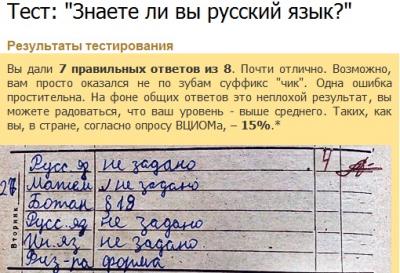 Тест: "Знаете ли вы русский язык?"
Результаты тестирования
Вы дали 7 правильных ответов из 8. Почти отлично. Возможно,
вам просто оказался не по зубам суффикс "чик". Одна ошибка
простительна. На фоне общих ответов это неплохой результат, вы
можете радоваться, что ваш уровень - выше среднего. Таких, как
вы, в стране, согласно опросу ВЦИОМа, – 15%.*
Русс. яз не задано 4
Матем не задано
Ботан §19
Русс. яз. не задано
Ин. яз не задано
Физ-ра форма
Вторник